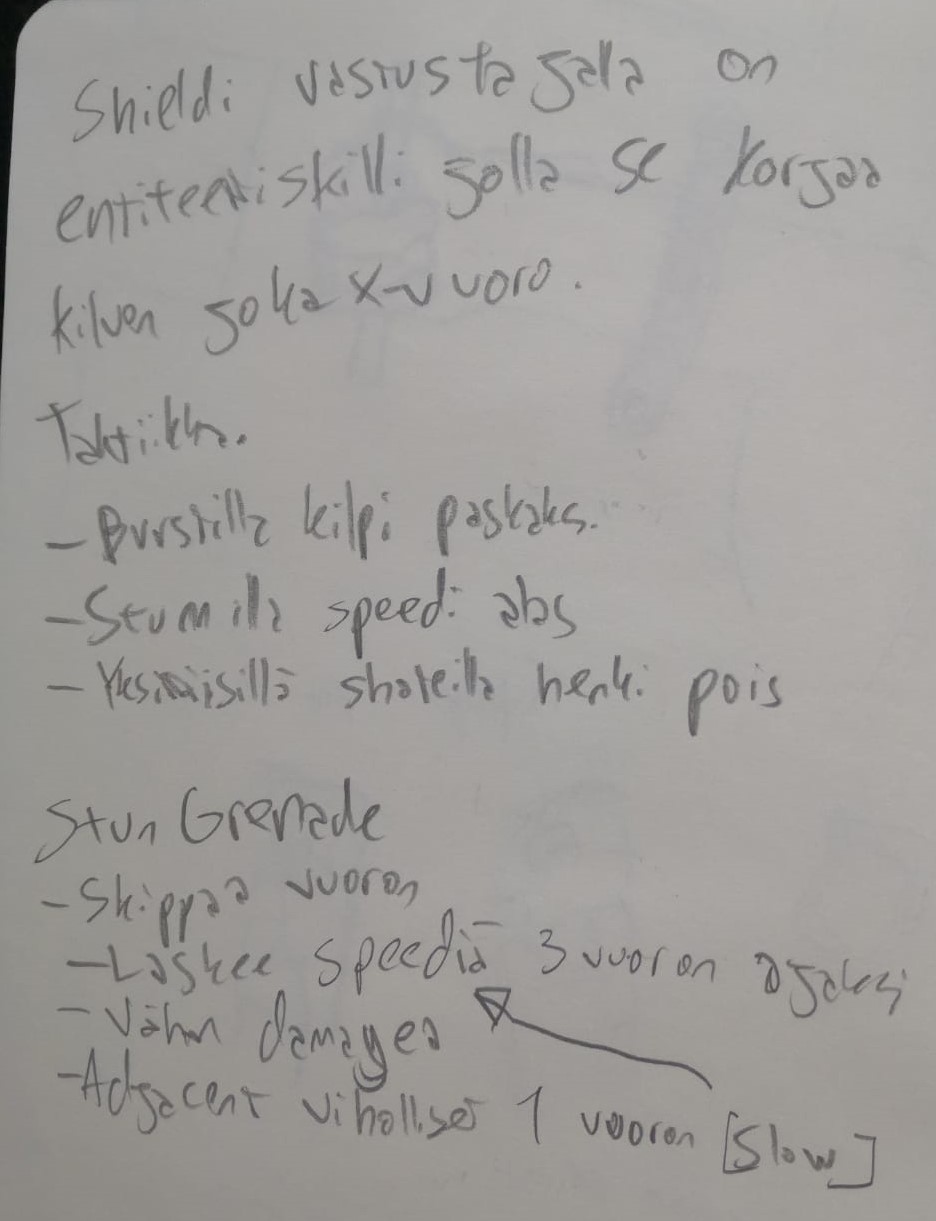 Shieldi vastustajalla on
entiteettiskilli jolla se korjaa
kilven joka x-vuoro.
Taktiikka.
- Burstilla kilpi paskaks.
- Stunilla speedi alas
- Yksittäisillä shoteilla henki pois
Stun Grenade
- Skippaa vuoron
- Laskee speediä 3 vuoron ajaksi
- Vähän damagea
- Adjacent viholliset 1 vuoron [Slow]